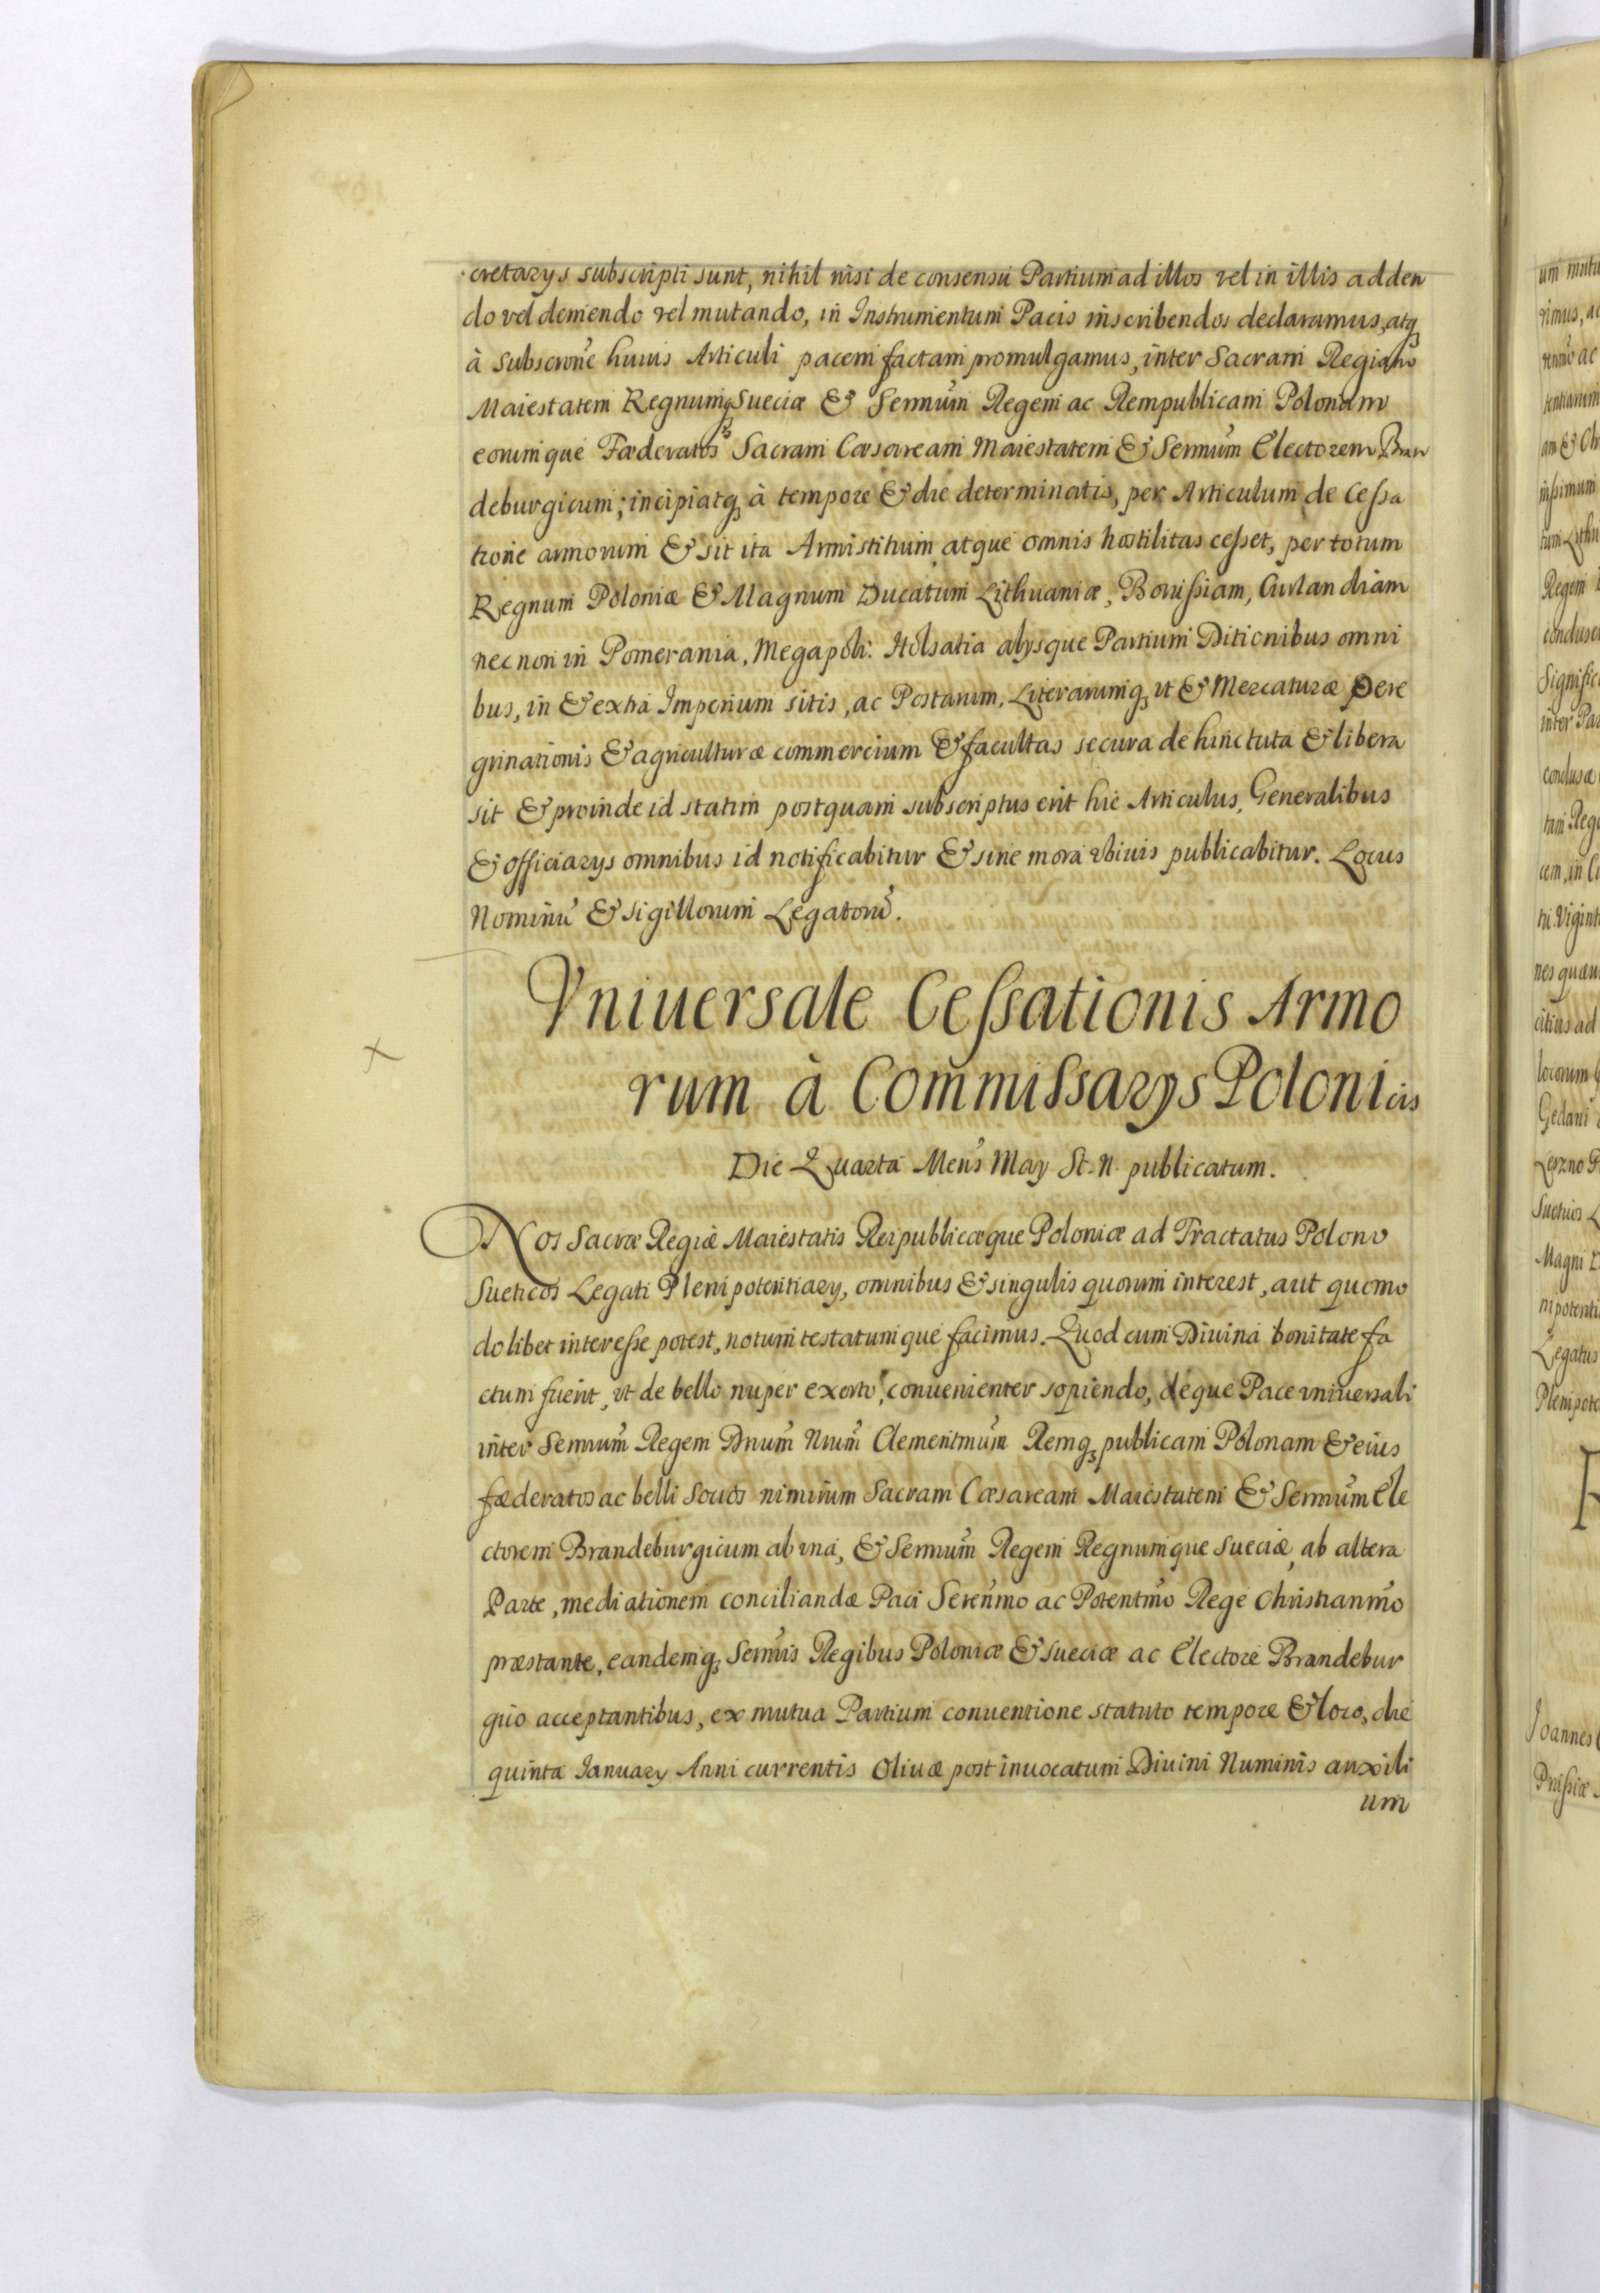 cretarys subscripti sunt, nihil nisi de consensu Partium ad illos vel in illis adden
do vel demendo vel mutando, in Instrumentum Pacis inscribendos declaramus, atq
à subscrone huius Articuli pacem factam promulgamus, inter Sacram Regiam
Maiestatem Regnumq Sueciæ & Sermum Regem ac Rempublicam Polonam
eorumque Fæderatos Sacram Cæsaream Maiestatem & Sermum Electorem Bran
deburgicum; incipiatq à tempore & die determinatis, per Articulum de Cessa
tione armorum & sit ita Armistitium atque omnis hostilitas cesset, per totum
Regnum Poloniæ & Magnum Ducatum Lithuaniæ, Borussiam, Curlandiam
nec non in Pomerania, Megapoli. Holsatia alysque Partium Ditionibus omni
bus, in & extra Imperium sitis, ac Postarum, Literarumq ut & Mercaturæ Pere
grinationis & agriculturæ commercium & facultas secura de hinc tuta & libera
sit & proinde id statim postquam subscriptus erit hic Articulus, Generalibus
& officiarys omnibus id notificabitur & sine mora vbiuis publicabitur. Locus
Nominū & sigillorum Legatorū.
Vniuersale Cessationis Armo
rum à Commissarys Polonicis
Die Quarta Mens May St. N. publicatum.
Nos Sacræ Regiæ Maiestatis Reipublicæque Poloniæ ad Tractatus Polono
Sueticos Legati Plenipotentiary, omnibus & singulis quorum interest, aut quomo
dolibet interesse potest, notum testatumque facimus. Quod cum Diuina bonitate fa
ctum fuerit, ut de bello nuper exorto, conuenienter sopiendo, deque Pace vniuersali
inter Sermum Regem Dnum Nrum Clementmum Remq publicam Polonam & eius
fæderatos ac belli Socios nimirum Sacram Cæsaream Maiestatem & Sermum Ele
ctorem Brandeburgicum ab vna, & Sermum Regem Regnumque Sueciæ, ab altera
Parte, mediationem conciliandæ Paci Serenmo ac Potentmo Rege Christianmo
præstante, eandemq Sermis Regibus Poloniæ & Sueciæ ac Electore Brandebur
gico acceptantibus, ex mutua Partium conuentione statuto tempore & loco, die
quinta January Anni currentis Oliuæ post inuocatum Diuini Numinis auxili
um